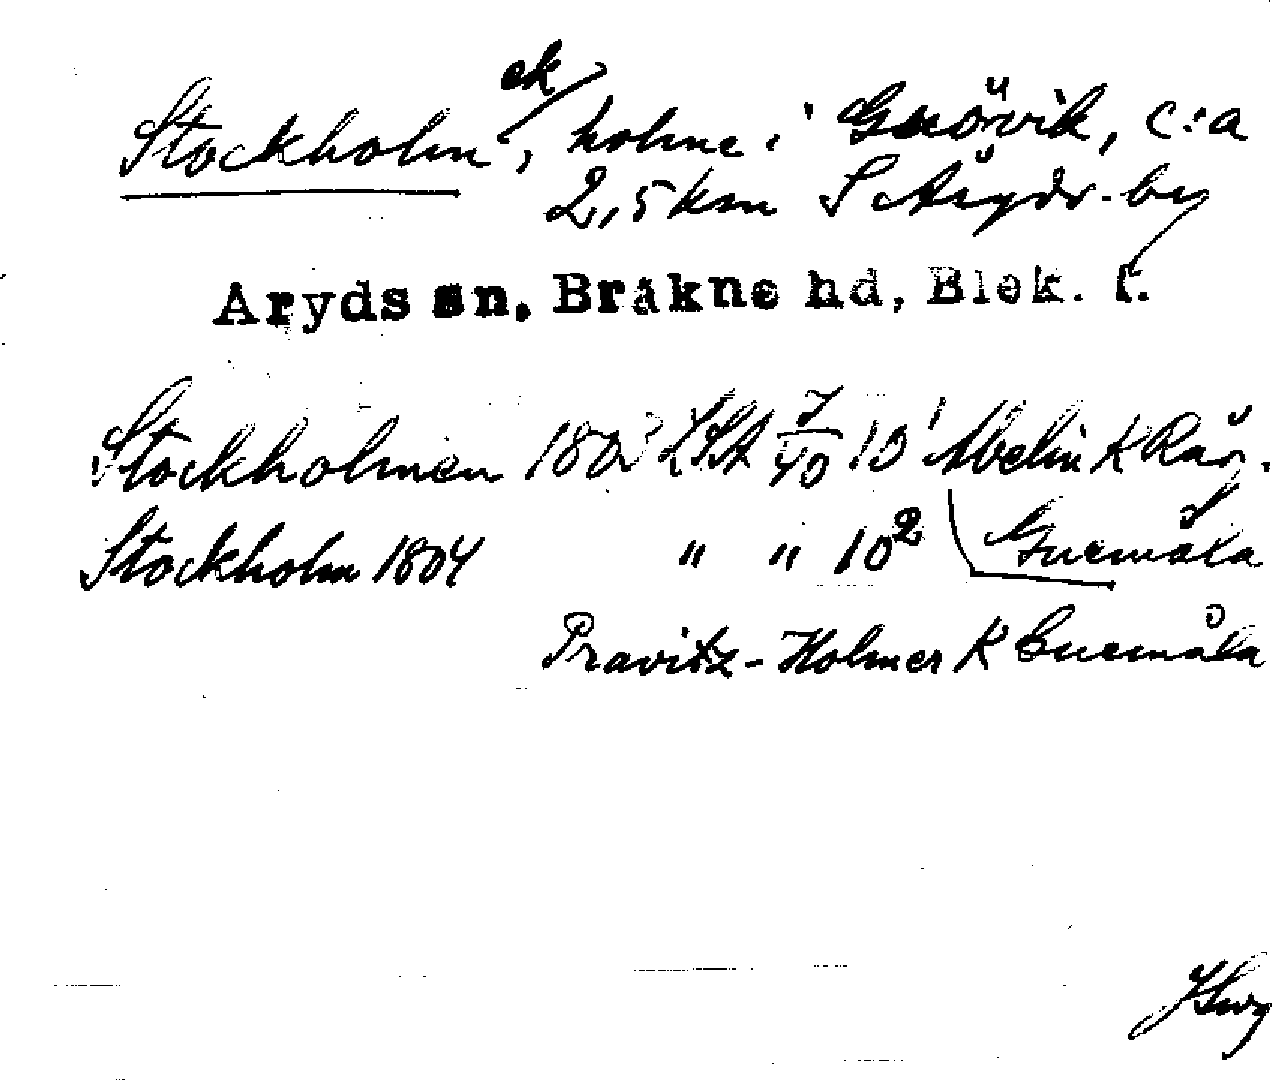 Stockholm ek, holme i Gnövik, c:a
2,5 km S Åryds by
Aryds sn. Bräkne hd, Blek. l.
Stockholmen 1803 LSA 7/40 10¹ Abelin K Räv.
Stockholm 1804 " " 10² Guemåla
Pravitz-Holmer K Guemåla